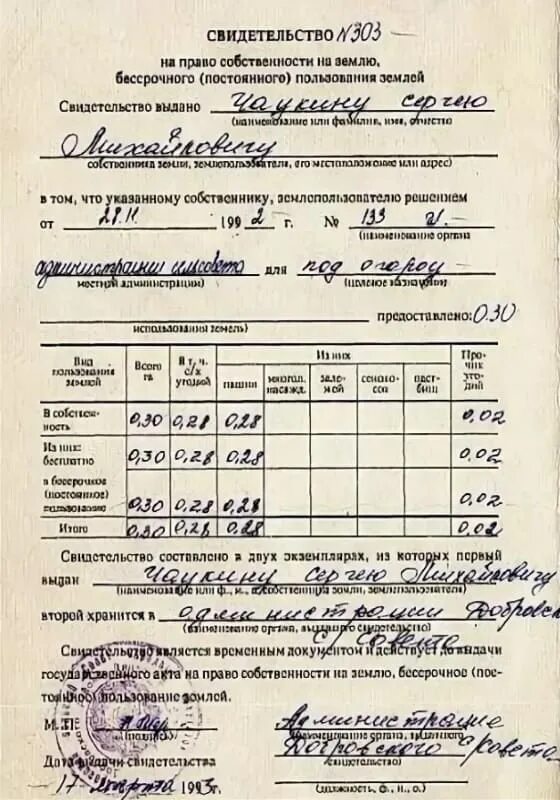 СВИДЕТЕЛЬСТВО №303
на право собственности на землю,
бессрочного (постоянного) пользования землей
Свидетельство выдано Чаукину Сергею
(наименование или фамилия, имя, отчество
Михайловичу
собственника земли, землепользователя, его местоположение или адрес)
в том, что указанному собственнику, землепользователю решением
от 28.11. 1992 г. № 133
(наименование органа
администрации с/совета для под огород
местной администрации) (целевое назначение
предоставлено: 0.30
использования земель)
Вид пользования землей Всего га В т. ч. с/х угодий Из них Прочих угодий
пашни многол. насажд. залежей сенокосов пастбищ
В собственность 0,30 0,28 0,28 0,02
Из них: бесплатно 0,30 0,28 0,28 0,02
в бессрочное (постоянное) пользование 0,30 0,28 0,28 0,02
Итого 0,30 0,28 0,28 0,02
Свидетельство составлено в двух экземплярах, из которых первый
выдан Чаукину Сергею Михайловичу
(наименование или ф., и., о. собственника земли, землепользователя)
второй хранится в администрации Добровск
(наименование органа, выдавшего свидетельство)
с/совета
Свидетельство является временным документом и действует до выдачи
государственного акта на право собственности на землю, бессрочное (пос-
тоянное) пользование землей.
М. П. Администрация
(подпись) (наименование органа, выдавшего
Добровского с/совета
Дата выдачи свидетельства свидетельство)
17 марта 1993г.
(должность, ф., и., о.)